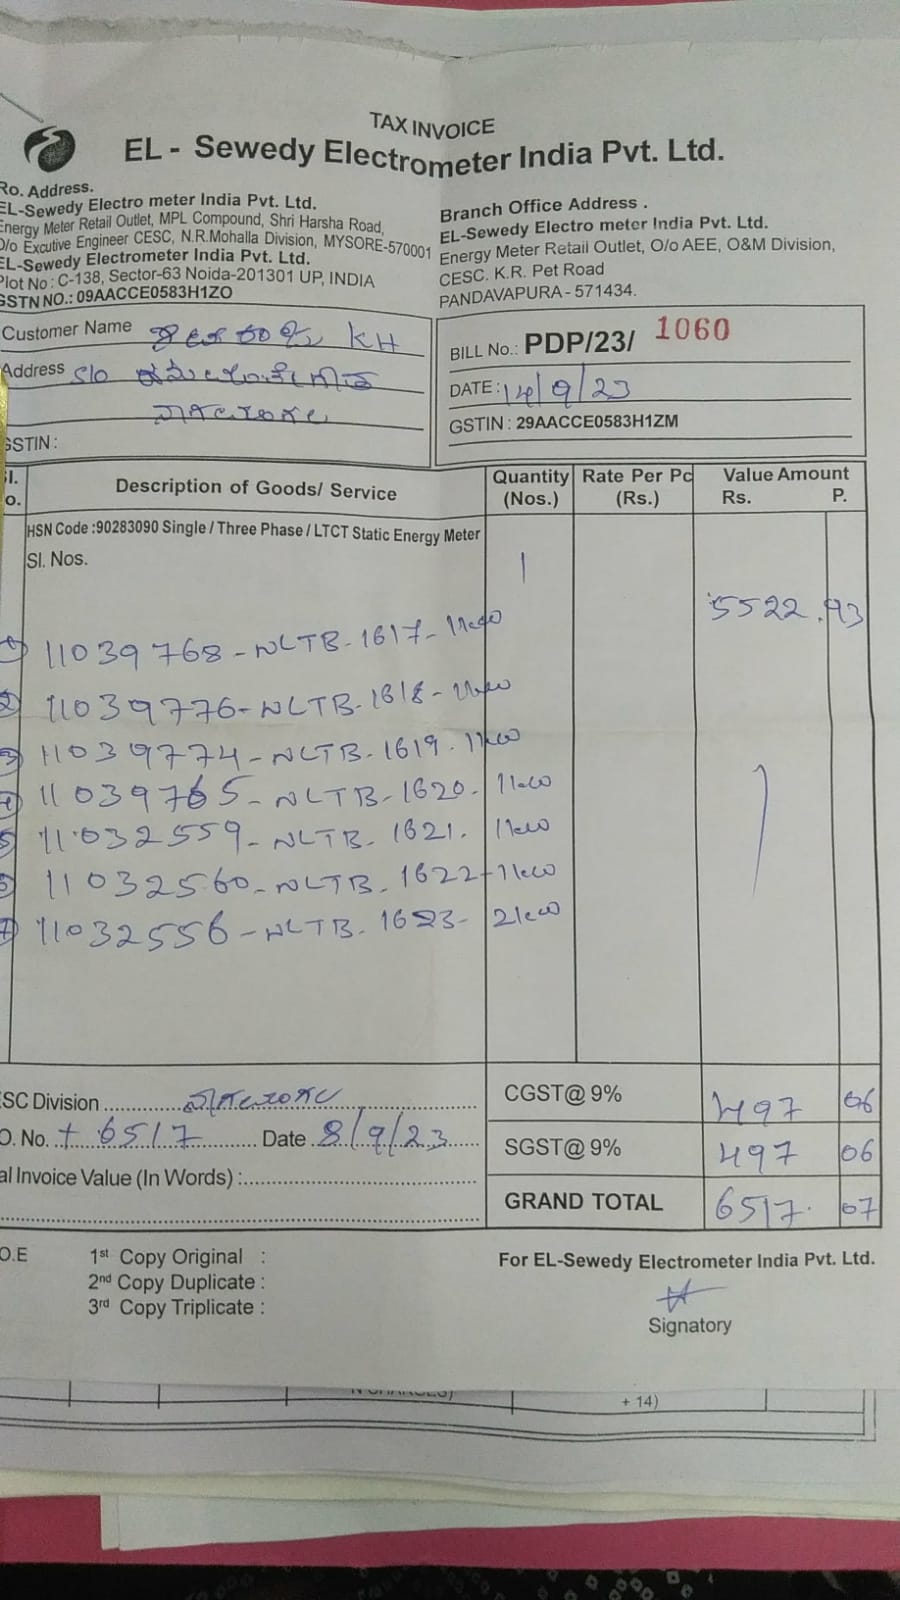 TAX INVOICE
EL - Sewedy Electrometer India Pvt. Ltd.
Ro. Address.
EL-Sewedy Electro meter India Pvt. Ltd.
Energy Meter Retail Outlet, MPL Compound, Shri Harsha Road,
O/o Excutive Engineer CESC, N.R.Mohalla Division, MYSORE-570001
EL-Sewedy Electrometer India Pvt. Ltd.
Plot No : C-138, Sector-63 Noida-201301 UP, INDIA
GSTN NO.: 09AACCE0583H1ZO
Branch Office Address .
EL-Sewedy Electro meter India Pvt. Ltd.
Energy Meter Retail Outlet, O/o AEE, O&M Division,
CESC. K.R. Pet Road
PANDAVAPURA - 571434.
Customer Name KH
Address S/o
ನಾಗಮಂಗಲ
GSTIN :
BILL No.: PDP/23/ 1060
DATE : 14/9/23
GSTIN : 29AACCE0583H1ZM
Sl. No. Description of Goods/ Service Quantity (Nos.) Rate Per Pc (Rs.) Value Amount Rs. P.
HSN Code :90283090 Single / Three Phase / LTCT Static Energy Meter
Sl. Nos.
1
5522.93
1 11039768 - NLTB - 1617 - 1kw
2 11039776 - NLTB - 1618 - 1kw
3 11039774 - NLTB - 1619 - 1kw
4 11039765 - NLTB - 1620 - 1kw
5 11032559 - NLTB - 1621 - 1kw
6 11032560 - NLTB - 1622 - 1kw
7 11032556 - NLTB - 1623 - 2kw
SC Division ನಾಗಮಂಗಲ
O. No. + 6517 Date 8/9/23
al Invoice Value (In Words) :
CGST@ 9% 497 06
SGST@ 9% 497 06
GRAND TOTAL 6517. 07
O.E
1st Copy Original :
2nd Copy Duplicate :
3rd Copy Triplicate :
For EL-Sewedy Electrometer India Pvt. Ltd.
Signatory
+ 14)